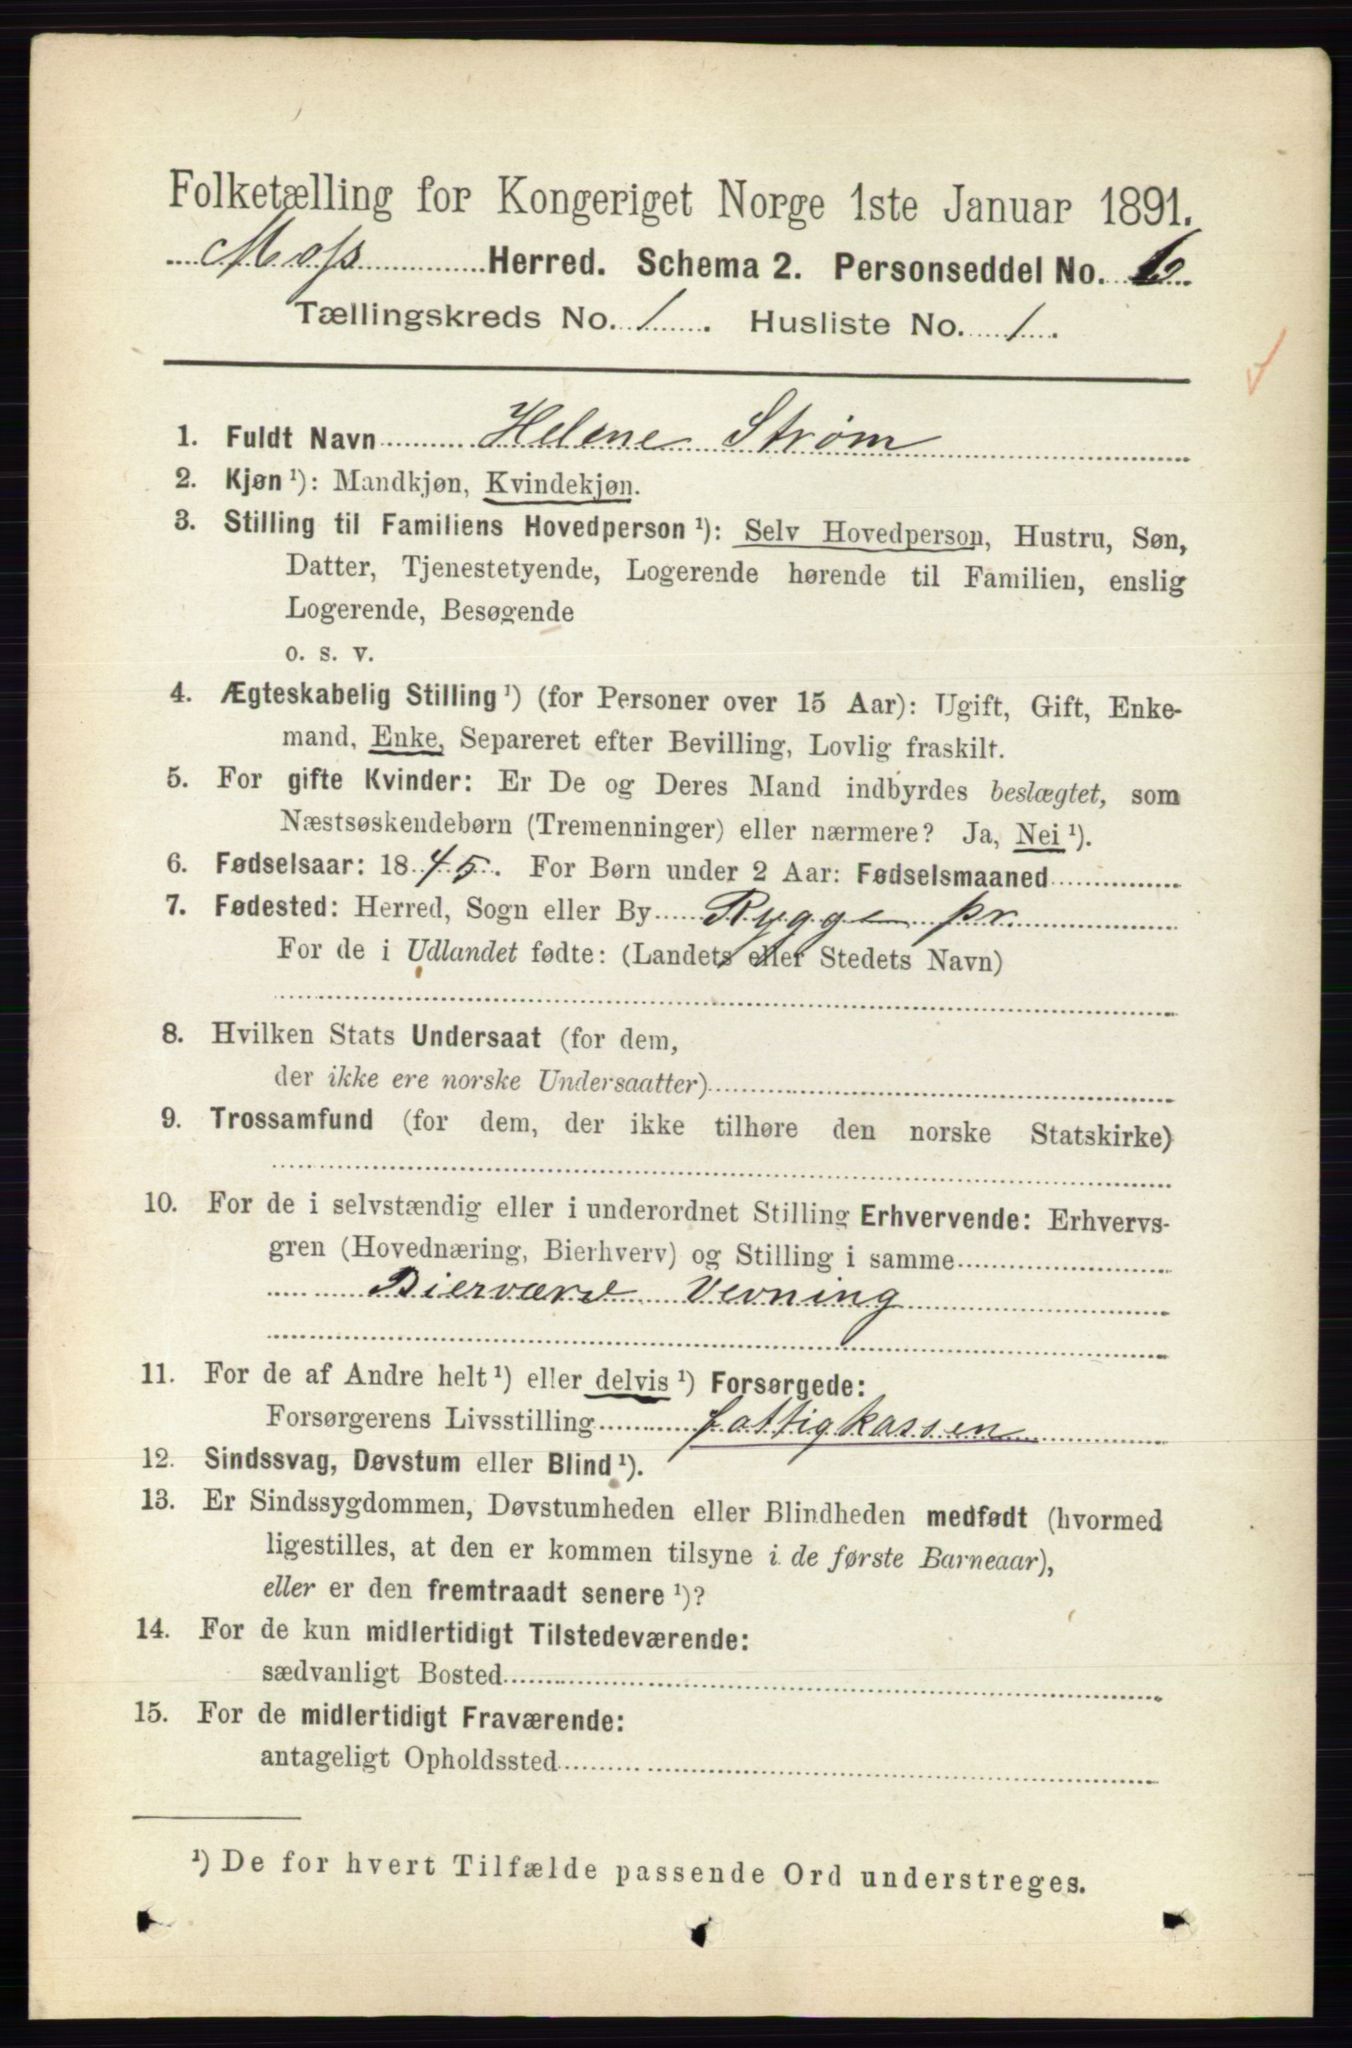 Folketælling for Kongeriget Norge 1ste Januar 1891.
Moss Herred. Schema 2. Personseddel No. 6
Tællingskreds No. 1. Husliste No. 1.
1. Fuldt Navn Helene Strøm
2. Kjøn ¹): Mandkjøn, Kvindekjøn.
3. Stilling til Familiens Hovedperson ¹): Selv Hovedperson, Hustru, Søn,
Datter, Tjenestetyende, Logerende hørende til Familien, enslig
Logerende, Besøgende
o. s. v.
4. Ægteskabelig Stilling ¹) (for Personer over 15 Aar): Ugift, Gift, Enke-
mand, Enke, Separeret efter Bevilling, Lovlig fraskilt.
5. For gifte Kvinder: Er De og Deres Mand indbyrdes beslægtet, som
Næstsøskendebørn (Tremenninger) eller nærmere? Ja, Nei ¹).
6. Fødselsaar: 1845. For Børn under 2 Aar: Fødselsmaaned
7. Fødested: Herred, Sogn eller By Rygge pr.
For de i Udlandet fødte: (Landets eller Stedets Navn)
8. Hvilken Stats Undersaat (for dem,
der ikke ere norske Undersaatter)
9. Trossamfund (for dem, der ikke tilhøre den norske Statskirke)
10. For de i selvstændig eller i underordnet Stilling Erhvervende: Erhvervs-
gren (Hovednæring, Bierhverv) og Stilling i samme
Bierværv Vevning
11. For de af Andre helt ¹) eller delvis ¹) Forsørgede:
Forsørgerens Livsstilling fattigkassen
12. Sindssvag, Døvstum eller Blind ¹).
13. Er Sindssygdommen, Døvstumheden eller Blindheden medfødt (hvormed
ligestilles, at den er kommen tilsyne i de første Barneaar),
eller er den fremtraadt senere ¹)?
14. For de kun midlertidigt Tilstedeværende:
sædvanligt Bosted
15. For de midlertidigt Fraværende:
antageligt Opholdssted
¹) De for hvert Tilfælde passende Ord understreges.